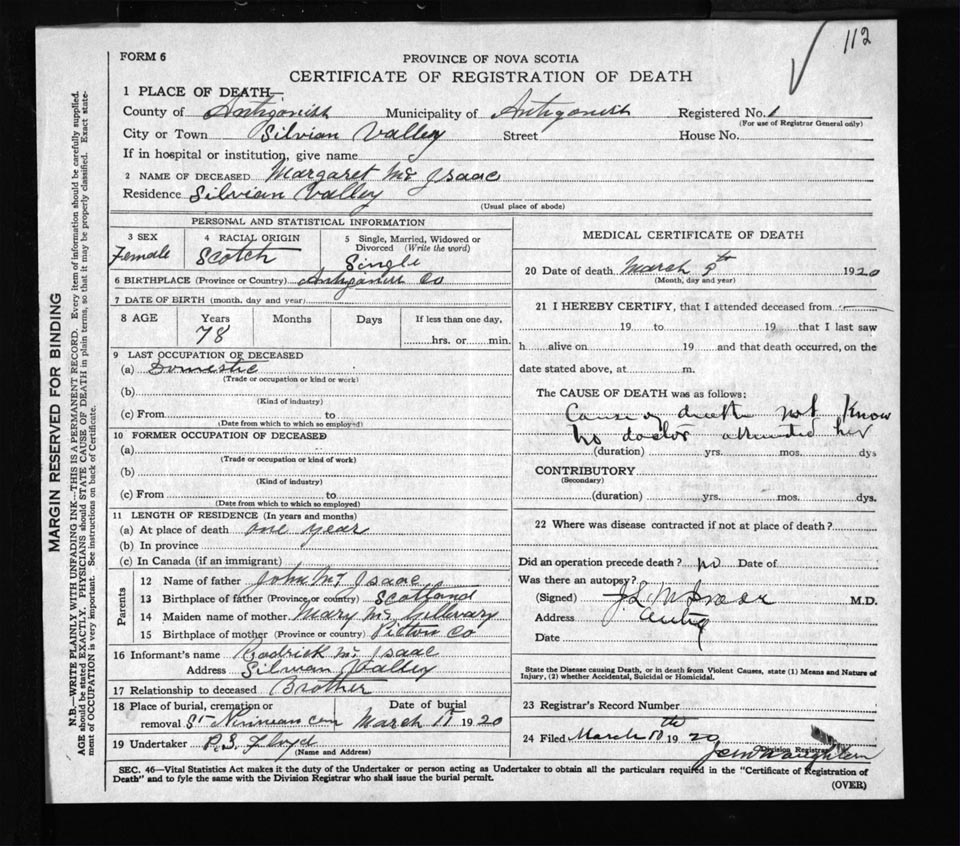 112
FORM 6
PROVINCE OF NOVA SCOTIA
CERTIFICATE OF REGISTRATION OF DEATH
1 PLACE OF DEATH—
County of Antigonish Municipality of Antigonish Registered No. 1
(For use of Registrar General only)
City or Town Silvian Valley Street House No.
If in hospital or institution, give name
2 NAME OF DECEASED Margaret Mc Isaac
Residence Silvian Valley
(Usual place of abode)
PERSONAL AND STATISTICAL INFORMATION
3 SEX
Female
4 RACIAL ORIGIN
Scotch
5 Single, Married, Widowed or
Divorced (Write the word)
Single
6 BIRTHPLACE (Province or Country) Antigonish Co
7 DATE OF BIRTH (month, day and year)
8 AGE Years Months Days If less than one day,
78 hrs. or min.
9 LAST OCCUPATION OF DECEASED
(a) Domestic
(Trade or occupation or kind or work)
(b)
(Kind of industry)
(c) From to
(Date from which to which so employed)
10 FORMER OCCUPATION OF DECEASED
(a)
(Trade or occupation or kind of work)
(b)
(Kind of industry)
(c) From to
(Date from which to which so employed)
11 LENGTH OF RESIDENCE (In years and months)
(a) At place of death one year
(b) In province
(c) In Canada (if an immigrant)
Parents
12 Name of father John Mc Isaac
13 Birthplace of father (Province or country) Scotland
14 Maiden name of mother Mary Mc Gillivary
15 Birthplace of mother (Province or country) Pictou Co
16 Informant's name Rodrick Mc Isaac
Address Silvian Valley
17 Relationship to deceased Brother
18 Place of burial, cremation or Date of burial
removal St Ninian Cem March 11 1920
19 Undertaker P.S. Floyd
(Name and Address)
MEDICAL CERTIFICATE OF DEATH
20 Date of death March 9th 1920
(Month, day and year)
21 I HEREBY CERTIFY, that I attended deceased from
19 to 19 that I last saw
h alive on 19 and that death occurred, on the
date stated above, at m.
The CAUSE OF DEATH was as follows:
Cause of death not Know
No doctor attended her
(duration) yrs. mos. dys
CONTRIBUTORY
(Secondary)
(duration) yrs. mos. dys.
22 Where was disease contracted if not at place of death?
Did an operation precede death? no Date of
Was there an autopsy?
(Signed) M.D.
Address Antig
Date
State the Disease causing Death, or in death from Violent Causes, state (1) Means and Nature of
Injury, (2) whether Accidental, Suicidal or Homicidal.
23 Registrar's Record Number
24 Filed March 10th 1920
Division Registrar
SEC. 46—Vital Statistics Act makes it the duty of the Undertaker or person acting as Undertaker to obtain all the particulars required in the "Certificate of Registration of
Death" and to fyle the same with the Division Registrar who shall issue the burial permit.
(OVER)
MARGIN RESERVED FOR BINDING
N.B.—WRITE PLAINLY WITH UNFADING INK—THIS IS A PERMANENT RECORD. Every item of information should be carefully supplied.
AGE should be stated EXACTLY. PHYSICIANS should STATE CAUSE OF DEATH in plain terms, so that it may be properly classified. Exact state-
ment of OCCUPATION is very important. See instructions on back of Certificate.